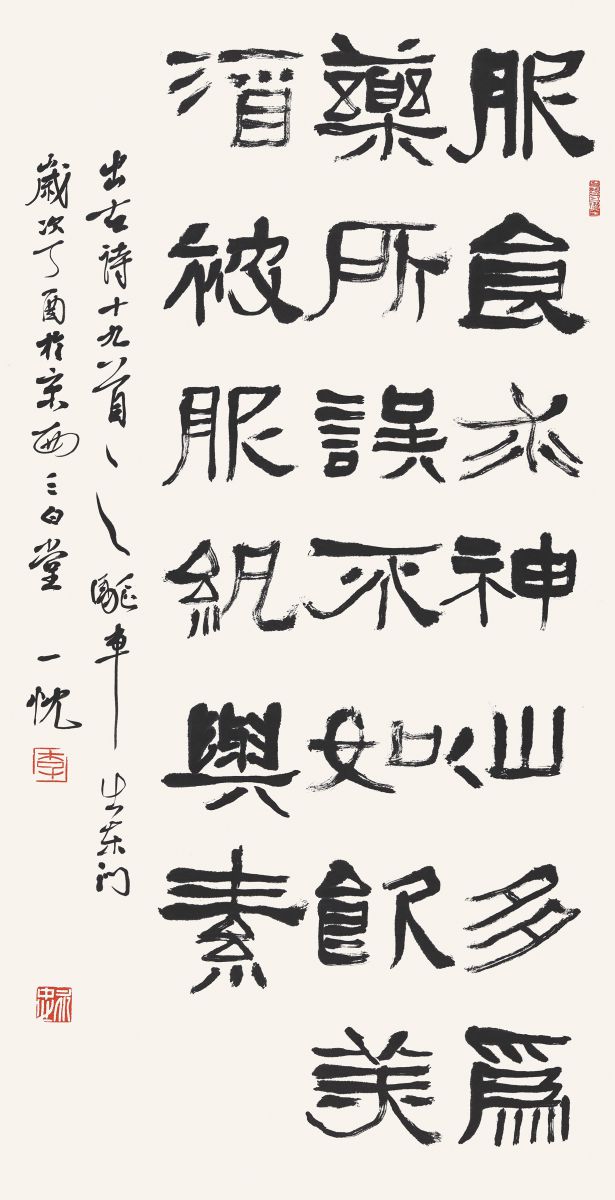 服食求神仙多為
藥所誤不如飲美
酒被服紈與素
出古詩十九首之驅車上东门
歲次丁酉於京西三白堂 一忱